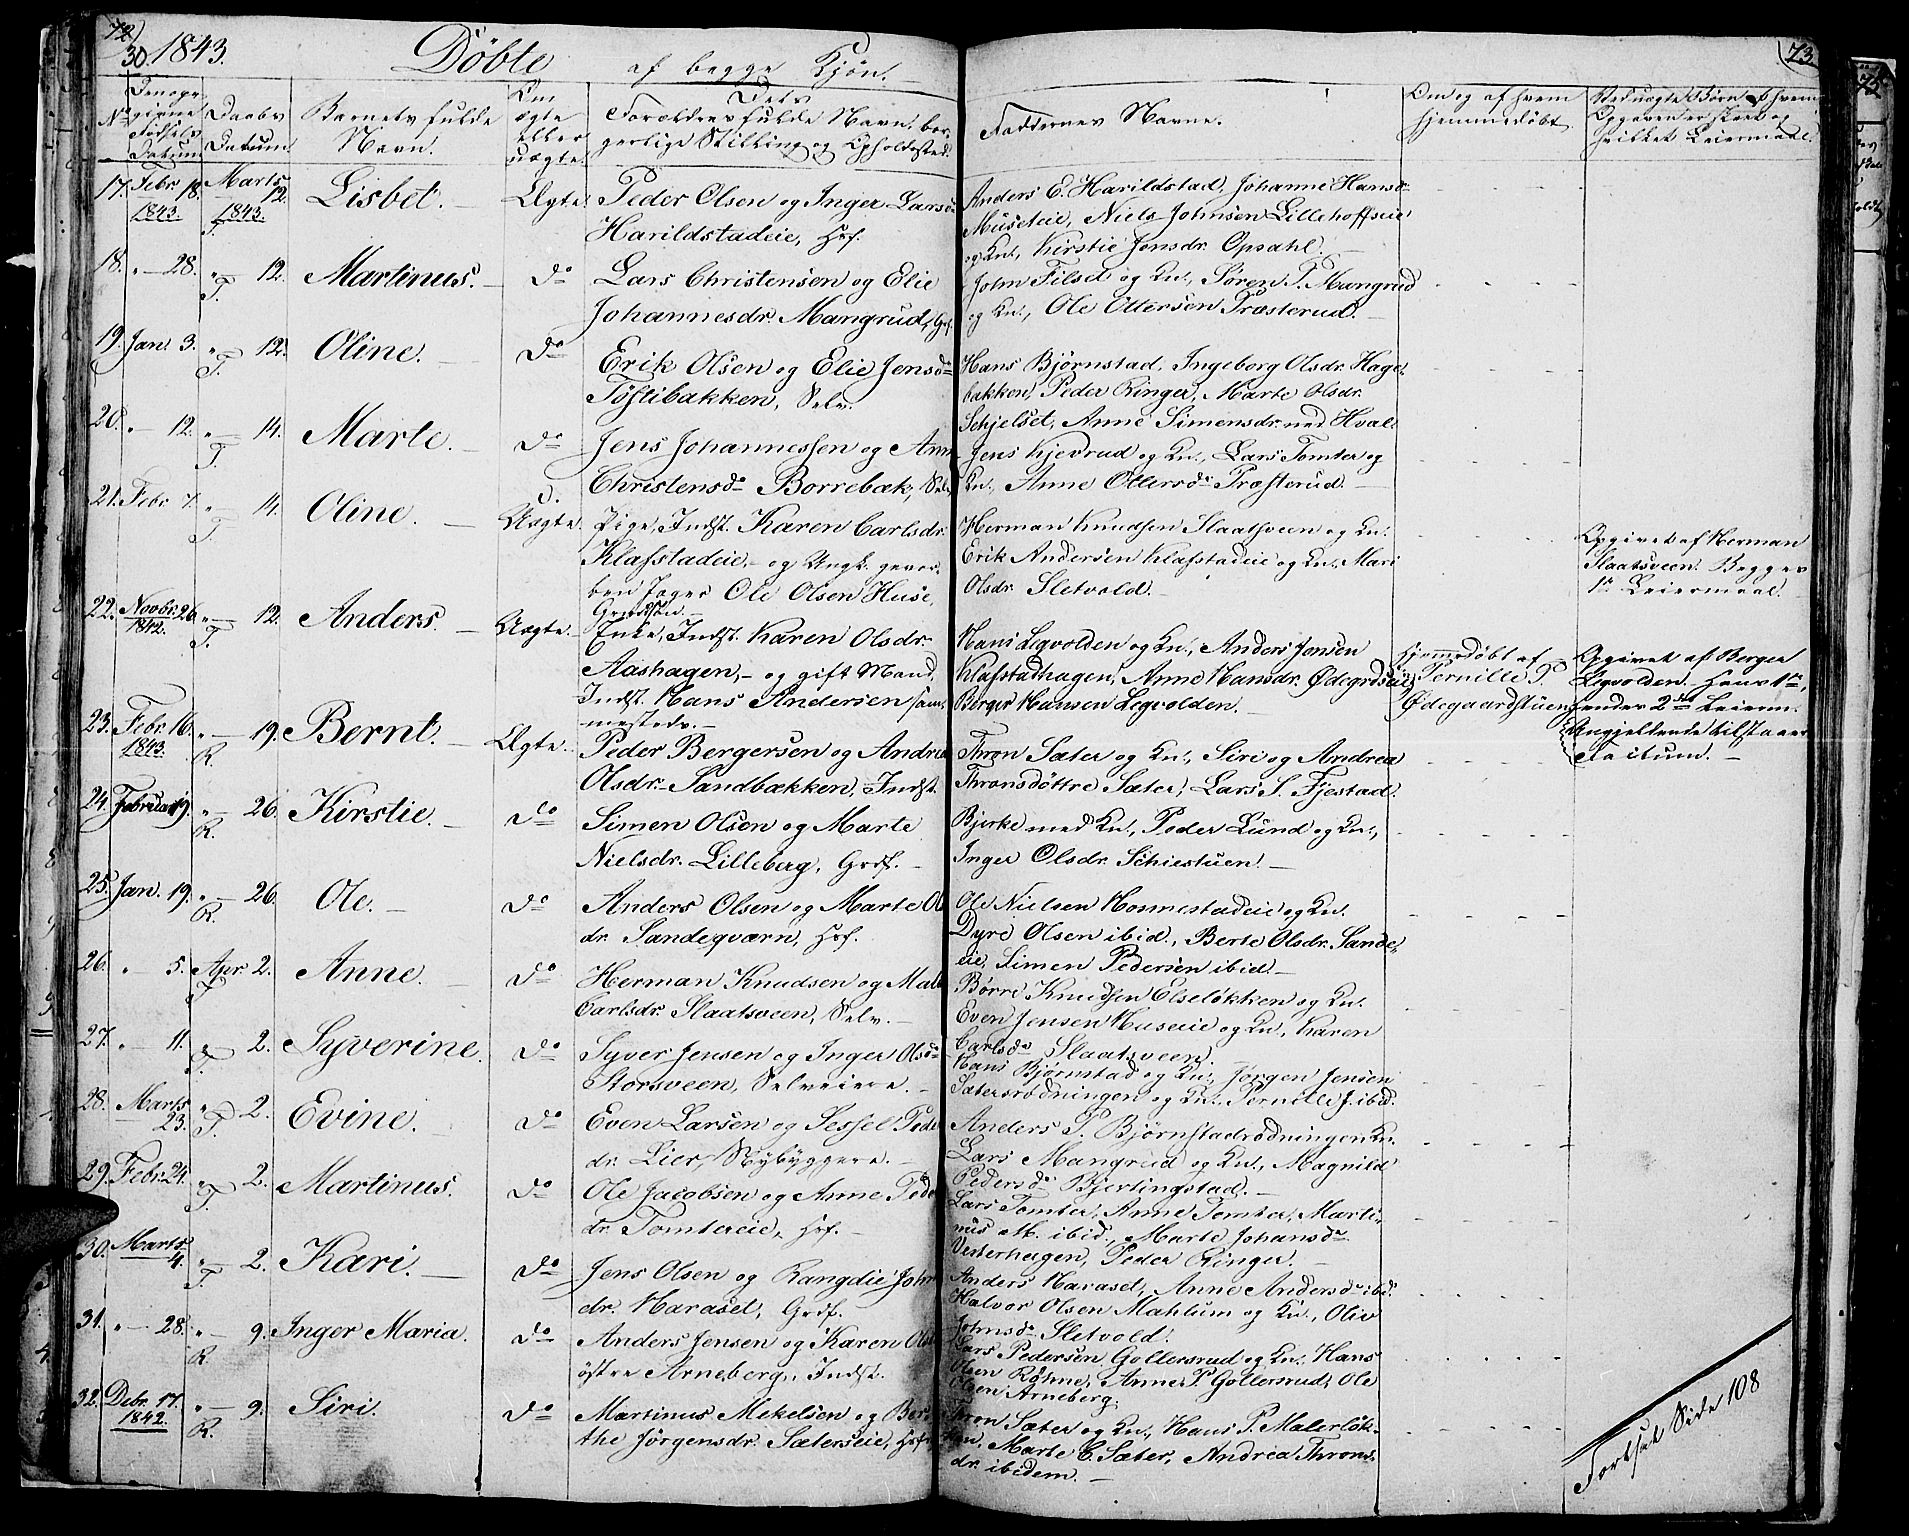 72) 30. 1843. Döbte af begge Kjön. (73
No Den opgivne Födsels Datum
Daabs Datum.
Barnets fulde Navn.
Om ægte eller uægte.
Dets Forældres fulde Navn, borgerlige Stilling og Opholdssted.
Faddernes Navne.
Om og af hvem hjemmedöbt.
Ved uægte Börn af hvem Opgaven er skeet og hvilket Leiermaal.
17. Febr. 18. 1843. Marts 12. 1843. T. Lisbet. Ægte. Peder Olsen og Inger Larsdr.
Harildstadeie, Hsf.
Anders E. Harildstad, Johanne Hansdr.
Museteie, Niels Johnsen Lillehoffseie
og Kn., Kirstie Jensdr. Opsahl.
18. " 28. " 12. T. Martinus. do Lars Christensen og Elie
Johannesdr. Mangrud, Gf.
John Filset og Kn., Sören P. Mangrud
og Kn., Ole Ottersen Præsterud.
19. Jan. 3. " 12. T. Oline. do Erik Olsen og Elie Jensdr
Töftibakken, Selv.
Hans Björnstad, Ingeborg Olsdr. Hage-
bakken, Peder Ringer, Marte Olsdr.
Schjelset, Anne Simensdr. ned Hval.
20. " 12. " 14. T. Marte. do Jens Johannessen og Anne
Christensdr Borrebæk, Selv.
Jens Kjevrud og Kn., Lars Tomter og
Kn., Anne Ottersdr Præsterud.
21. Febr. 7. " 14. T. Oline. Uægte. Pige, Indst. Karen Carlsdr.
Klafstadeie, og Ungk. gevor-
ben Jæger Ole Olsen Huse,
Herman Knudsen Slaatsveen og Kn.
Erik Andersen Klafstadeie og Kn. Mari
Olsdr. Sletvold.
Opgivet af Herman
Slaatsveen. Begges
1ste Leiermaal.
22. Novbr. 26. 1842. " 12. T. Anders. Uægte. Enke, Indst. Karen Olsdr.
Aashagen, og gift Mand,
Indst. Hans Andersen sam-
mesteds.
Hans Legvolden og Kn., Anders Jensen
Klafstadhagen, Anne Hansdr. Ödegrdseie,
Berger Hansen Legvolden.
Hjemmedöbt af
Pernille P.
Ödegaardstuen
Opgivet af Berger
Legvolden. Hans 1ste,
hendes 2det Leierm.
Angjeldende tilstaaer
Factum.
23. Febr. 16. 1843. " 19. R. Bernt. Ægte. Peder Bergersen og Andrea
Olsdr. Sandbækken, Indst.
Thron Sæter og Kn., Siri og Andrea
Thronsdöttre Sæter, Lars S. Fjestad.
24. Februar 19. " 26. R. Kirstie. do Simen Olsen og Marte
Nielsdr. Lilleberg, Grdf.
Bjerke med Kn., Peder Lund og Kn.,
Inger Olsdr. Schiestuen.
25. Jan. 19. " 26. R. Ole. do Anders Olsen og Marte Ols
dr. Sandeqværn, Hsf.
Ole Nielsen Honnestadeie og Kn.
Dyre Olsen ibid., Berte Olsdr. Sande-
eie, Simen Pedersen ibid.
26. " 5. Apr. 2. T. Anne. do Herman Knudsen og Mali
Carlsdr. Slaatsveen, Selv.
Börre Knudsen Elselökken og Kn.
Even Jensen Huseeie og Kn., Karen
Carlsdr Slaatsveen.
27. " 11. " 2. T. Syverine. do Syver Jensen og Inger Olsdr
Storsveen, Selveiere.
Hans Björnstad og Kn., Jörgen Jensen
Sætersrødningen og Kn., Pernille J. ibid.
28. Marts 23. " 2. T. Evine. do Even Larsen og Sessel Peders
dr. Lier, Nybyggere.
Anders P. Björnstadrødningen Kn.
Lars Mangrud og Kn., Magnild
Pedersdr Bjertingstad.
29. Febr. 24. " 2. T. Martinus. do Ole Jacobsen og Anne Peders
dr. Tomtereie, Hsf.
Lars Tomter, Anne Tomter, Marti-
nus M. ibid., Marte Johansdr
Vesterhagen, Peder Ringer.
30. Marts 4. " 2. T. Kari. do Jens Olsen og Rangdie John
dr. Haraset, Grdf.
Anders Haraset, Anne Andersdr ibd.
Halvor Olsen Mahlum og Kn., Oliv
Johnsdr Sletvold.
31. " 28. " 9. R. Inger Maria. do Anders Jensen og Karen Olsd
östre Arneberg, Indst.
Lars Pedersen Gollersrud og Kn., Hans
Olsen Röhne, Anne P. Gollersrud, Ole
Olsen Arneberg.
32. Debr. 17. 1842. " 9. R. Siri. do Martinus Mekelsen og Ber-
the Jörgensdr. Sæterseie, Hsf.
Thron Sæter og Kn., Hans P. Malerlök-
ken, Marte C. Sæter, Andrea Throns-
dr. ibidem.
Fortsat Side 108